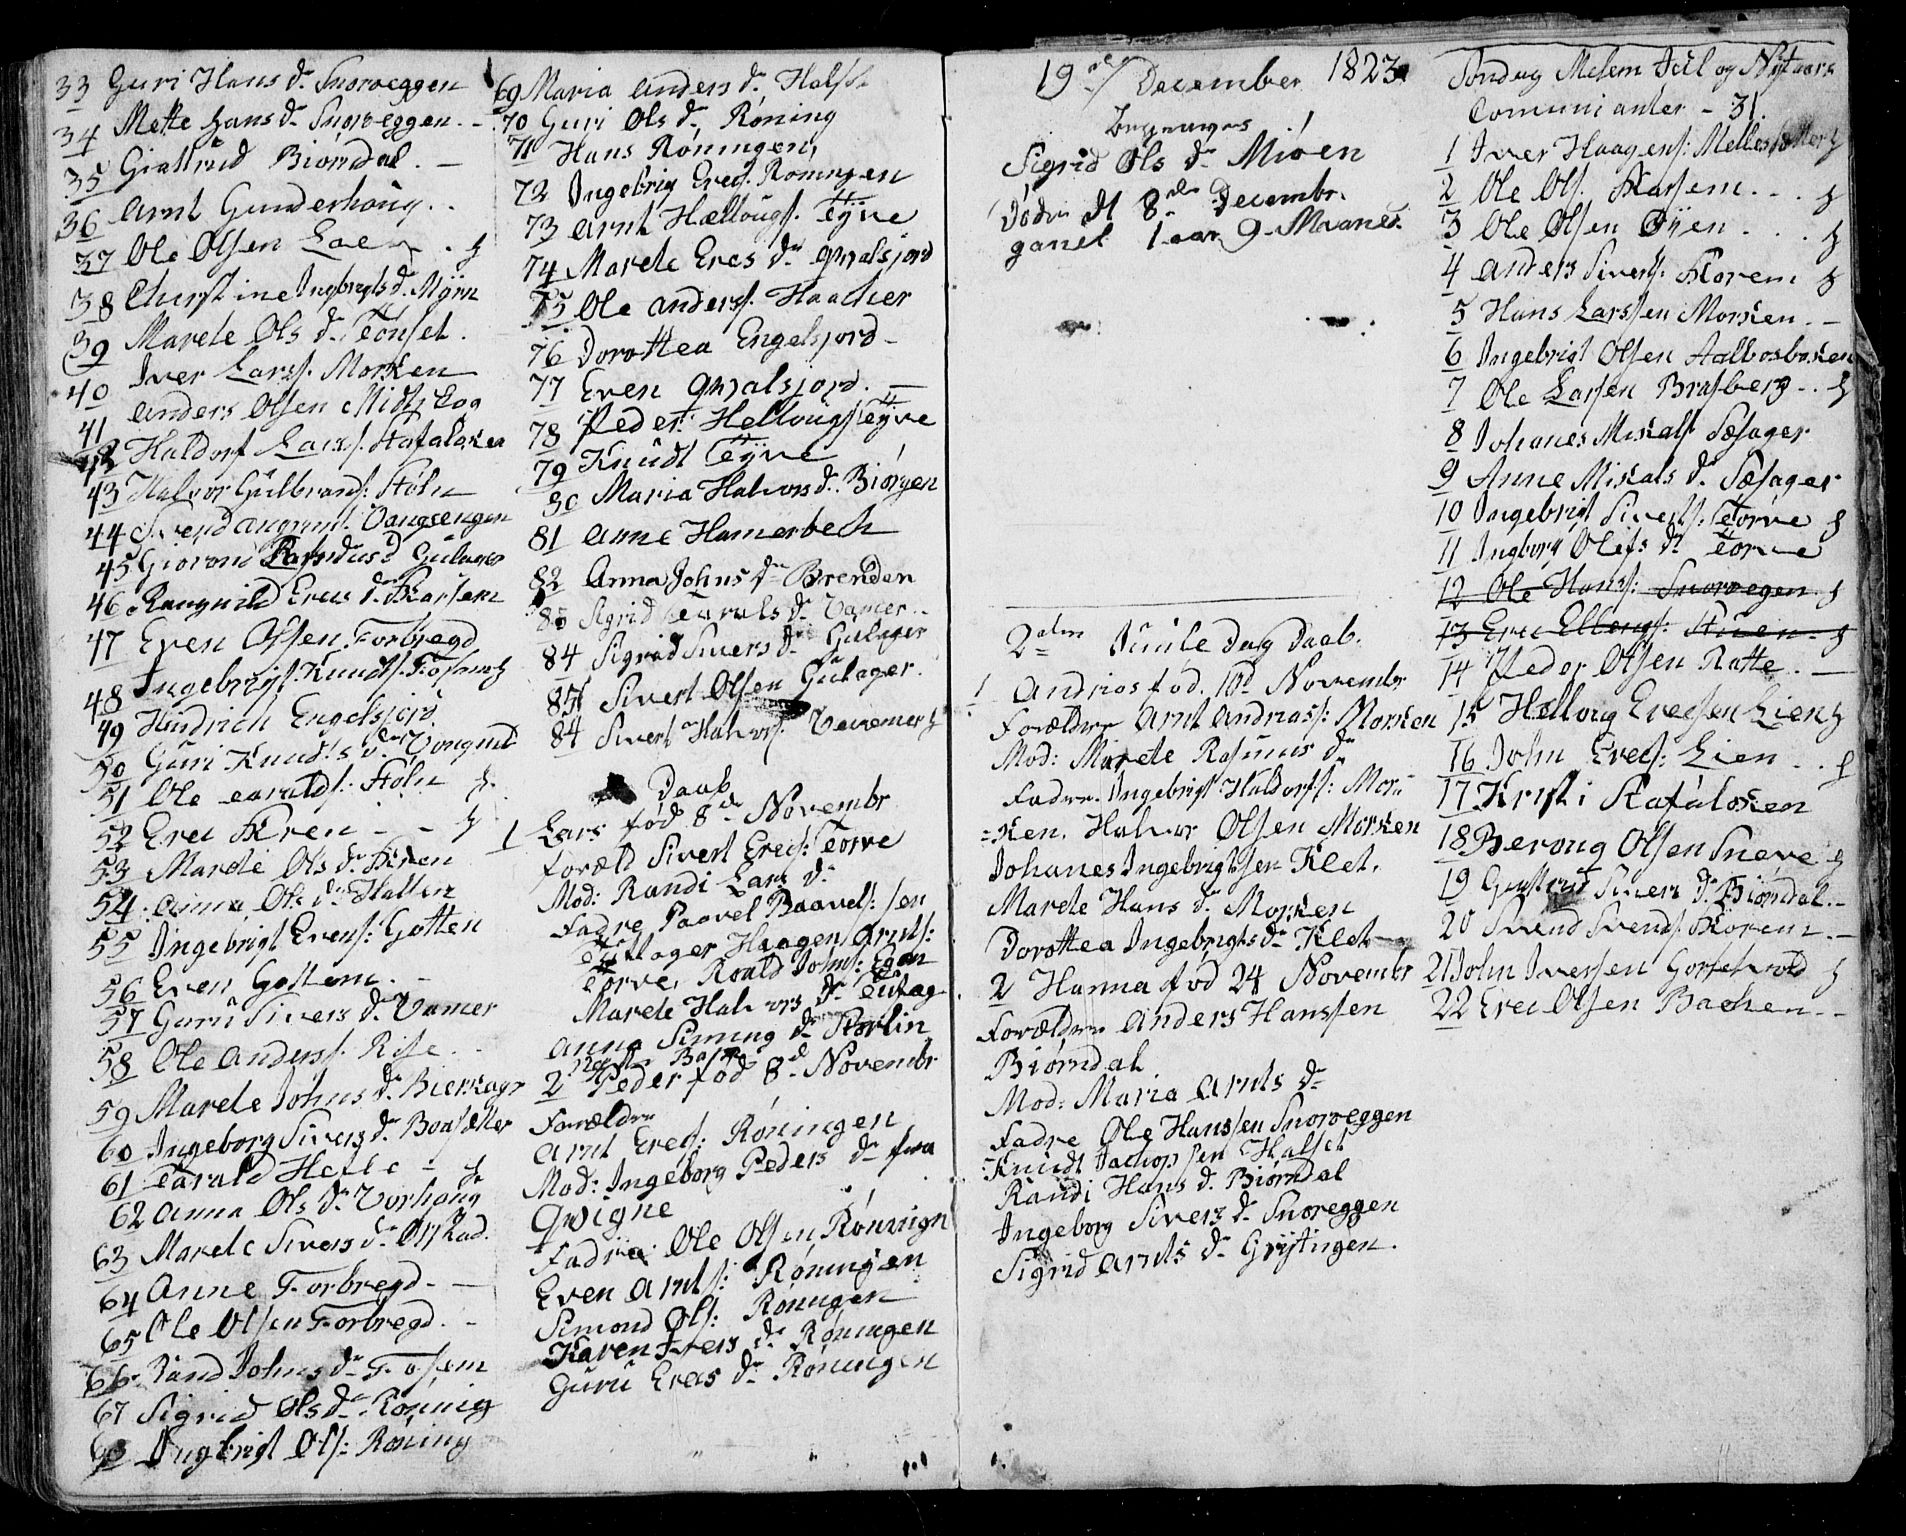 33 Guri Hans d. Snoreggen
34 Mette Hans d. Snoreggen. -
35 Giattrud Biørndal. -
36 Arnt Gunderhoug. .
37 Ole Olsen Loe
38 Christine Ingbrigts d. Myrn
39 Marete Ols d. Tønset.
40 Iver Larss. Morken
41 Anders Olsen
42 Haldorf Larss. Stafaløken
43 Halvor Gulbrands. Støln
44 Svend Vangsengen
45 d Gulager
46 Rangnild Erecs d. Skarsem
47 Even Olsen Forbregd
48 Ingebrigt Knudts. Fosem
49 Hindrich Engelsjord
50 Guri Knudts d. Vongnild
51 Ole Taralds. Støln
52 Erec Kren - -
53 Marete Ols d. Viken
54 Anna Ols d. Hallen
55 Ingebrigt Evens: Gotten
56 Even Gottem. -
57 Guru Sivers d. Vamer
58 Ole Anders. Rise . .
59 Marete Johns d. Bierkager
60 Ingeborg Sivers d. Bonsætter
61 Tarald Helle -
62 Anna Ols d. Vorhoug
63 Marete Sivers d.
64 Anne Forbregd. -
65 Ole Olsen Forbregd. -
66 Rand Johns d. Fosem
67 Sigrid Ols d. Rønnig
68 Ingbrigt Ols: Røning
69 Maria Anders d. Halset
70 Guri Ols d. Røning
71 Hans Røningen,
72 Ingebrig Erecs. Roningen
73 Arnt Hællougs. Tyve
74 Marete Erecs d. Qvalsjord
75 Ole Anders. Haacher
76 Dorottea Engelsjord -
77 Even Qvalsjord. -
78 Peder: Hellougs. Tyve
79 Knudt Tyve
80 Maria Halvors d. Biørgen
81 Anne Hamerbech
82 Anna Johns d. Brenden
83 Sigrid Taralds d. Vamer. .
84 Sigrid Sivers d. Gulager
85 Sivert Olsen Gulager.
84 Sivert Halvors. Vavemer
Daab
1 Lars fød 8 d Novembr
Foræld Sivert Erecs: Torve
Mod: Randi Lars d.
Fadre Paavel Paavels: sen
Gullager Haagen Arnts:
Torve, Roald Johns:
Marete Halvors d.
Anna Simung d.
2 Peder fød 8 d. Novembr
Forældre
Arnt Erecs: Røningen
Mod: Ingeborg Peders d. fra
Qvigne
Fadre Ole Olsen Rønnign
Even Arnts: Røningen
Simond Ols: Røningen
Karen Ivers d. Røningen
Guru Erecs d. Røningen
19 de/ December 1823
Begraves
Sigrid Ols d. Miøen
Døde dt 8 de Decembr.
gamel 1 aar 9 Maaner
2 den Juule Dag Daab.
1 Andrias fød. 10 d Novembr
Forældre Arnt Andriass: Morken
Mod: Marete Rasmus d.
Fadre. Ingebrigt Haldorfs: Mor=
=ken. Halvor Olsen Morken
Johanes Ingebrigtsen Klet.
Marete Hans d. Morken
Dorottea Ingebrigts d. Klet
2 Hanna fød 24 Novembr
Forældre Anders Hanssen
Biørndal
Mod: Maria Arnts d.
Fadre Ole Hanssen Snoreggen
Knudt Jachopsen Halset
Randi Hans d. Biørndal
Ingeborg Sivers d. Snoreggen
Sigrid Arnts d. Grytingen.
Søndag Melem Jul og Nytaars
Comunianter - 31.
1 Iver Haagens:
2 Ole Ols. Skarsem. . .
3 Ole Olsen Øyen . .
4 Anders Sivers. Skorem
5 Hans Larssen Morken. -
6 Ingebrigt Olsen Aalbosbaken
7 Ole Larsen Brasberg. .
8 Johanes Mikals Sæsager
9 Anne Mikals d. Sæsager
10 Ingebrigt Siverts: Torve
11 Ingborg Olefs d. Torve
12 Ole Hans: Snoreegen
13 Erec Ellengs: Stuen
14 Peder Olsen Ratte. -
15 Helloug Erecsen Lien
16 John Erecs: Lien . .
17 Kristi Stafaløken
18 Beroug Olsen Sneve
19 Giattrud Sivers d. Biørndal. -
20 Svend Svends. Skorem. -
21 John Iversen Gorsetvold
22 Erec Olsen Bachen. -